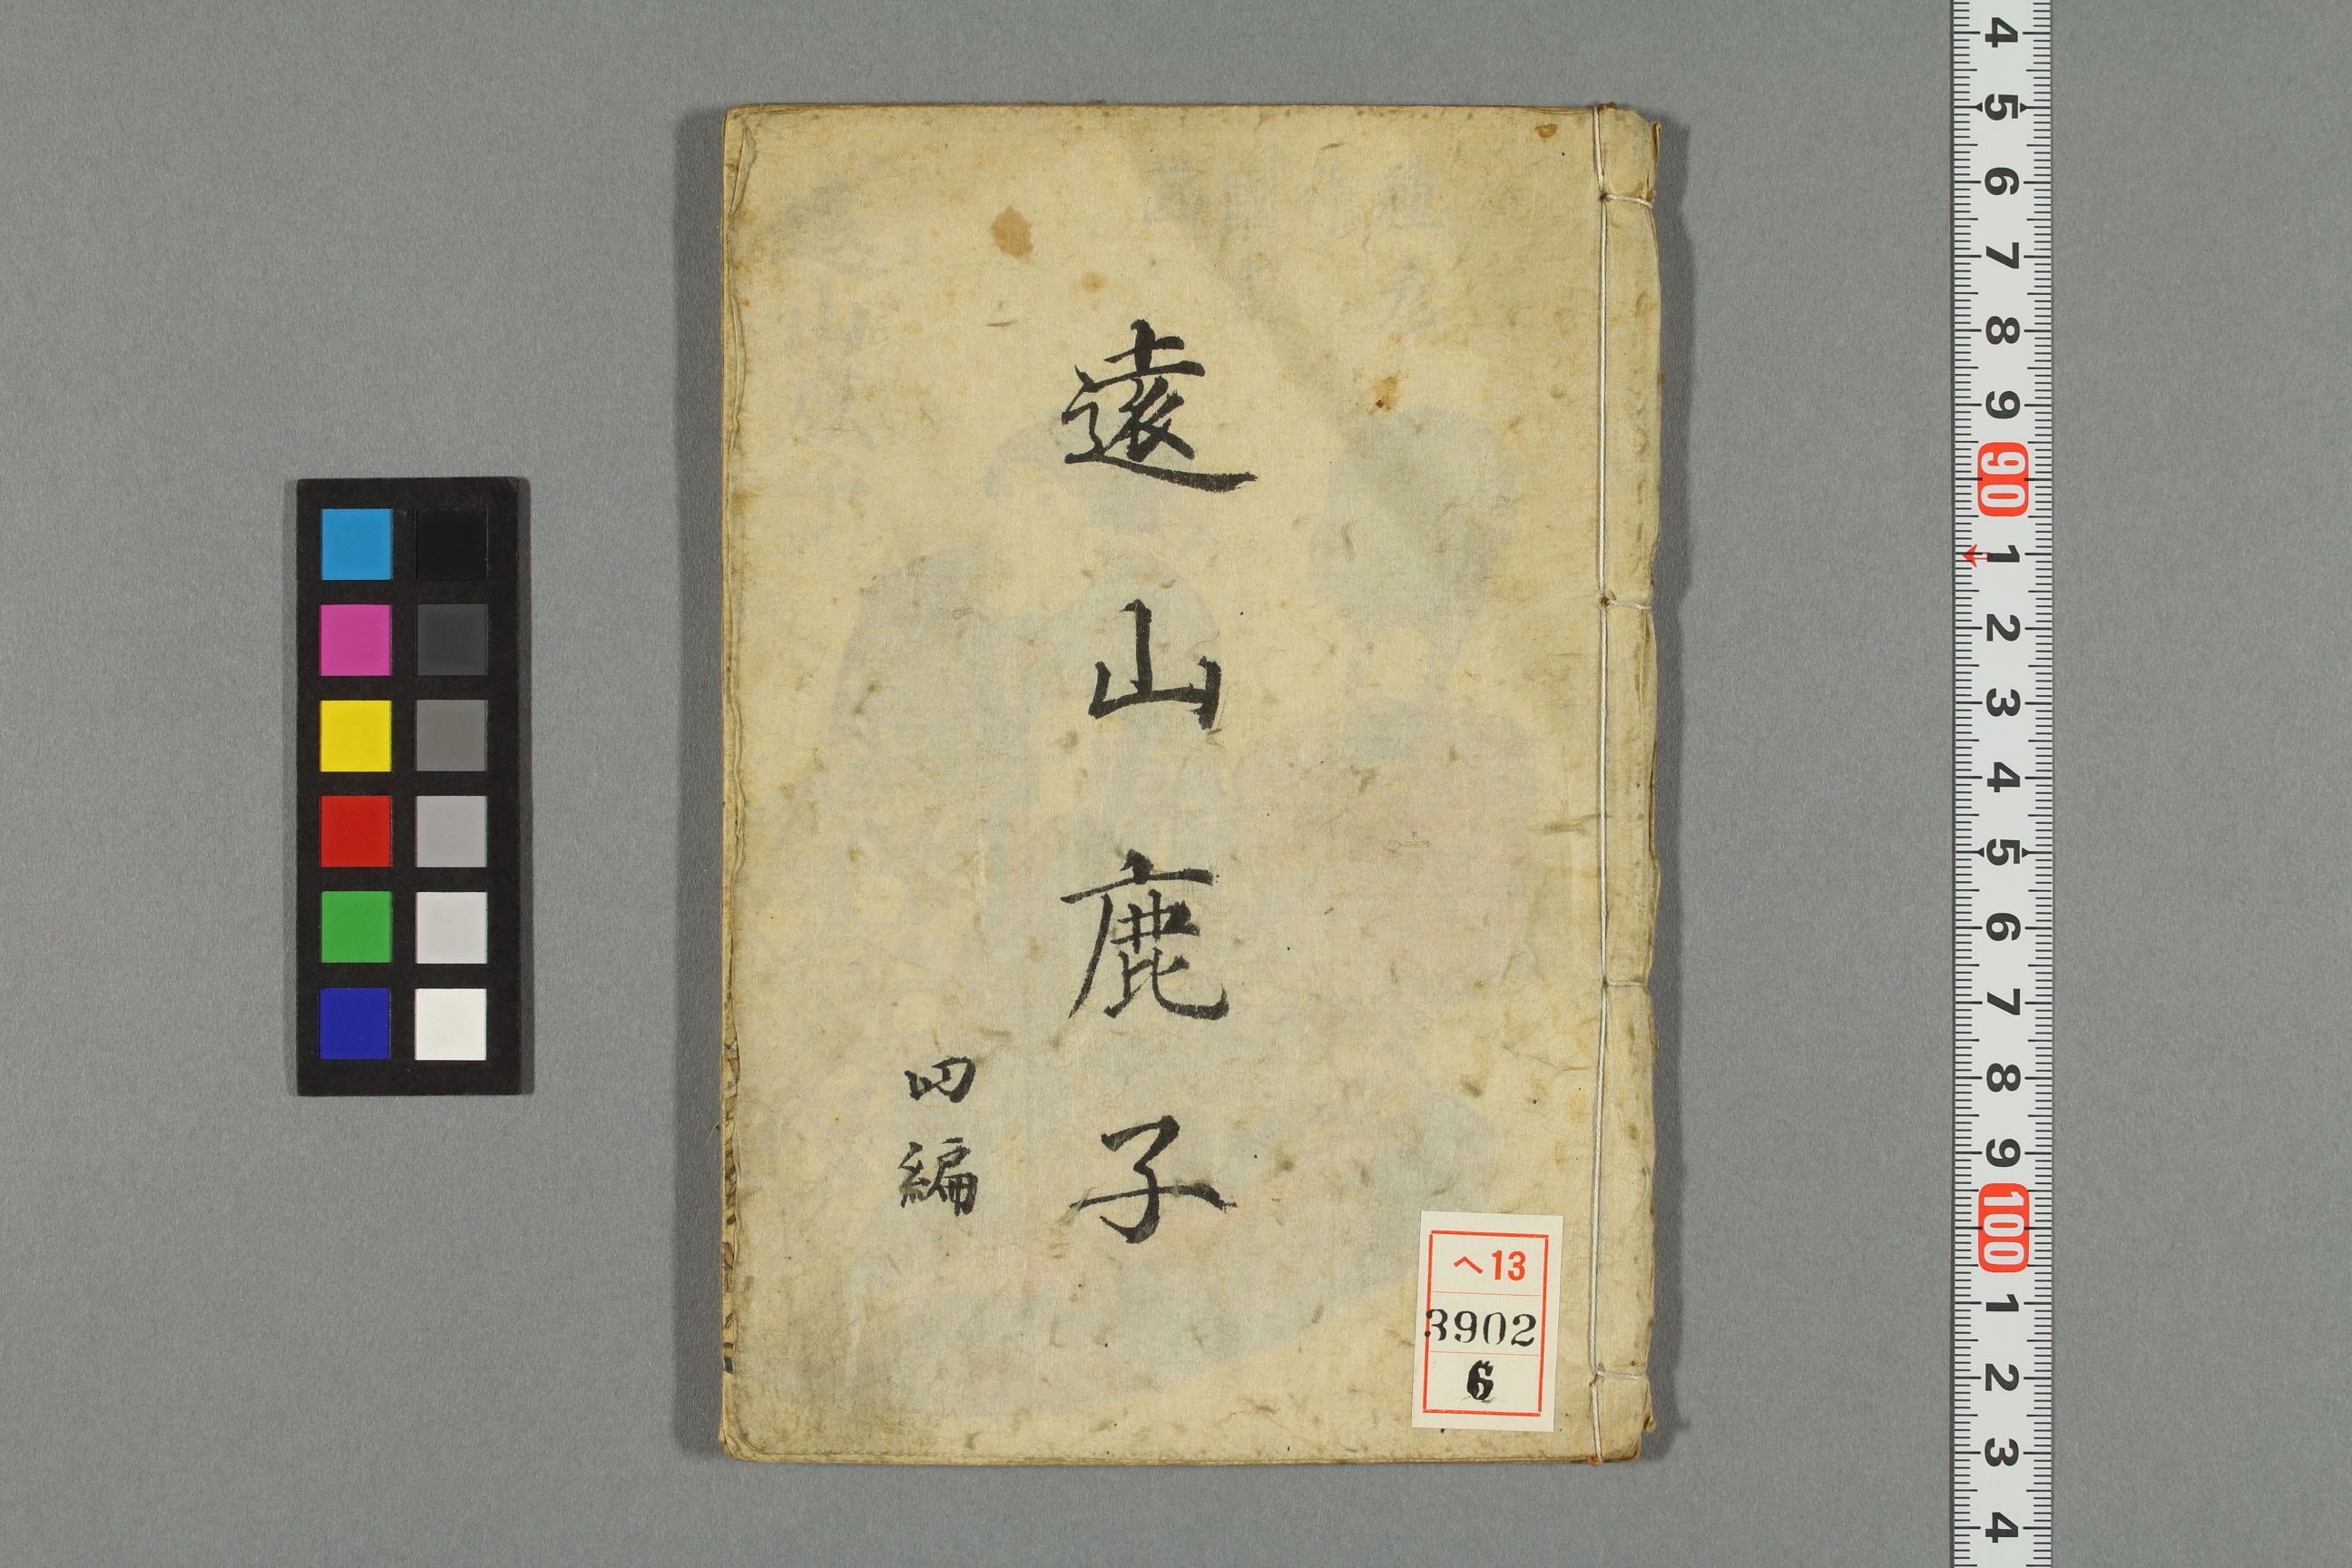 遠山鹿子
四編
へ13
3902
6
4
5
6
7
8
9
90
1
2
3
4
5
6
7
8
9
100
1
2
3
4